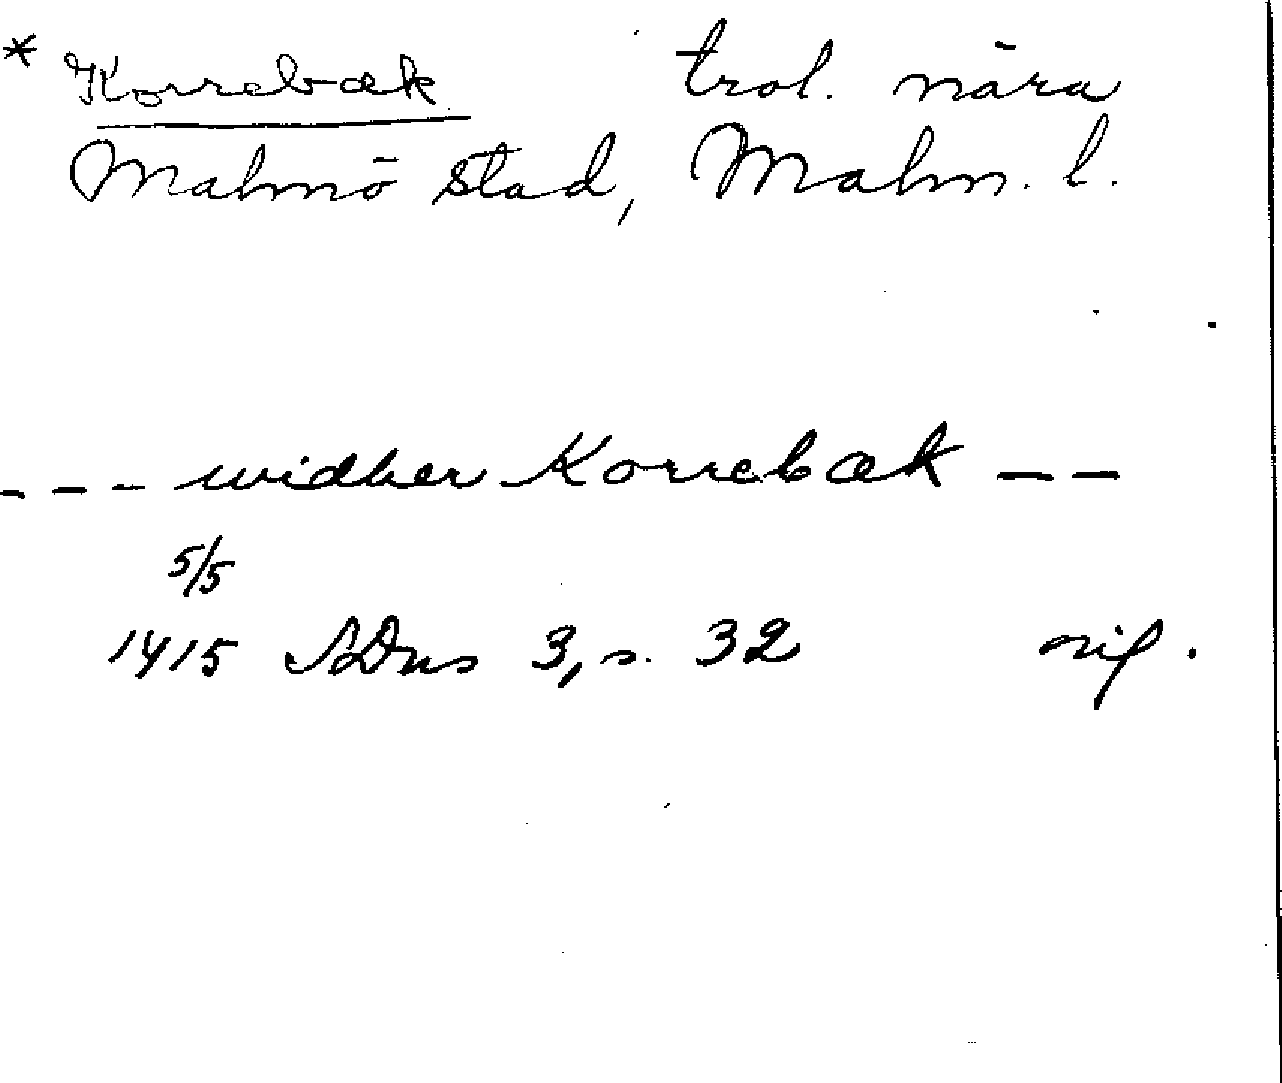 * Korrebæk trol. nära
Malmö stad, Malm. l.
--- widher Korrebæk --
5/5
1415 SDns 3, s. 32